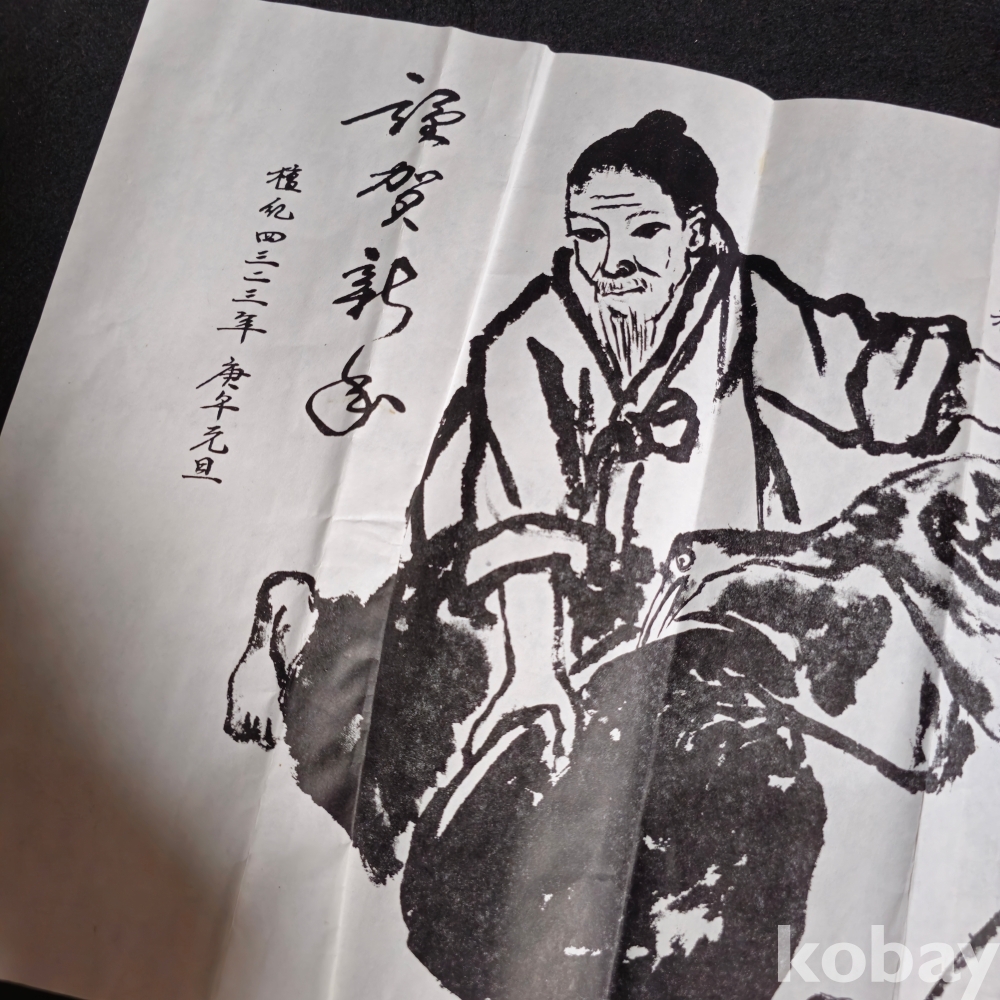 謹賀新年
檀紀四三二三年 庚午元旦
kobay